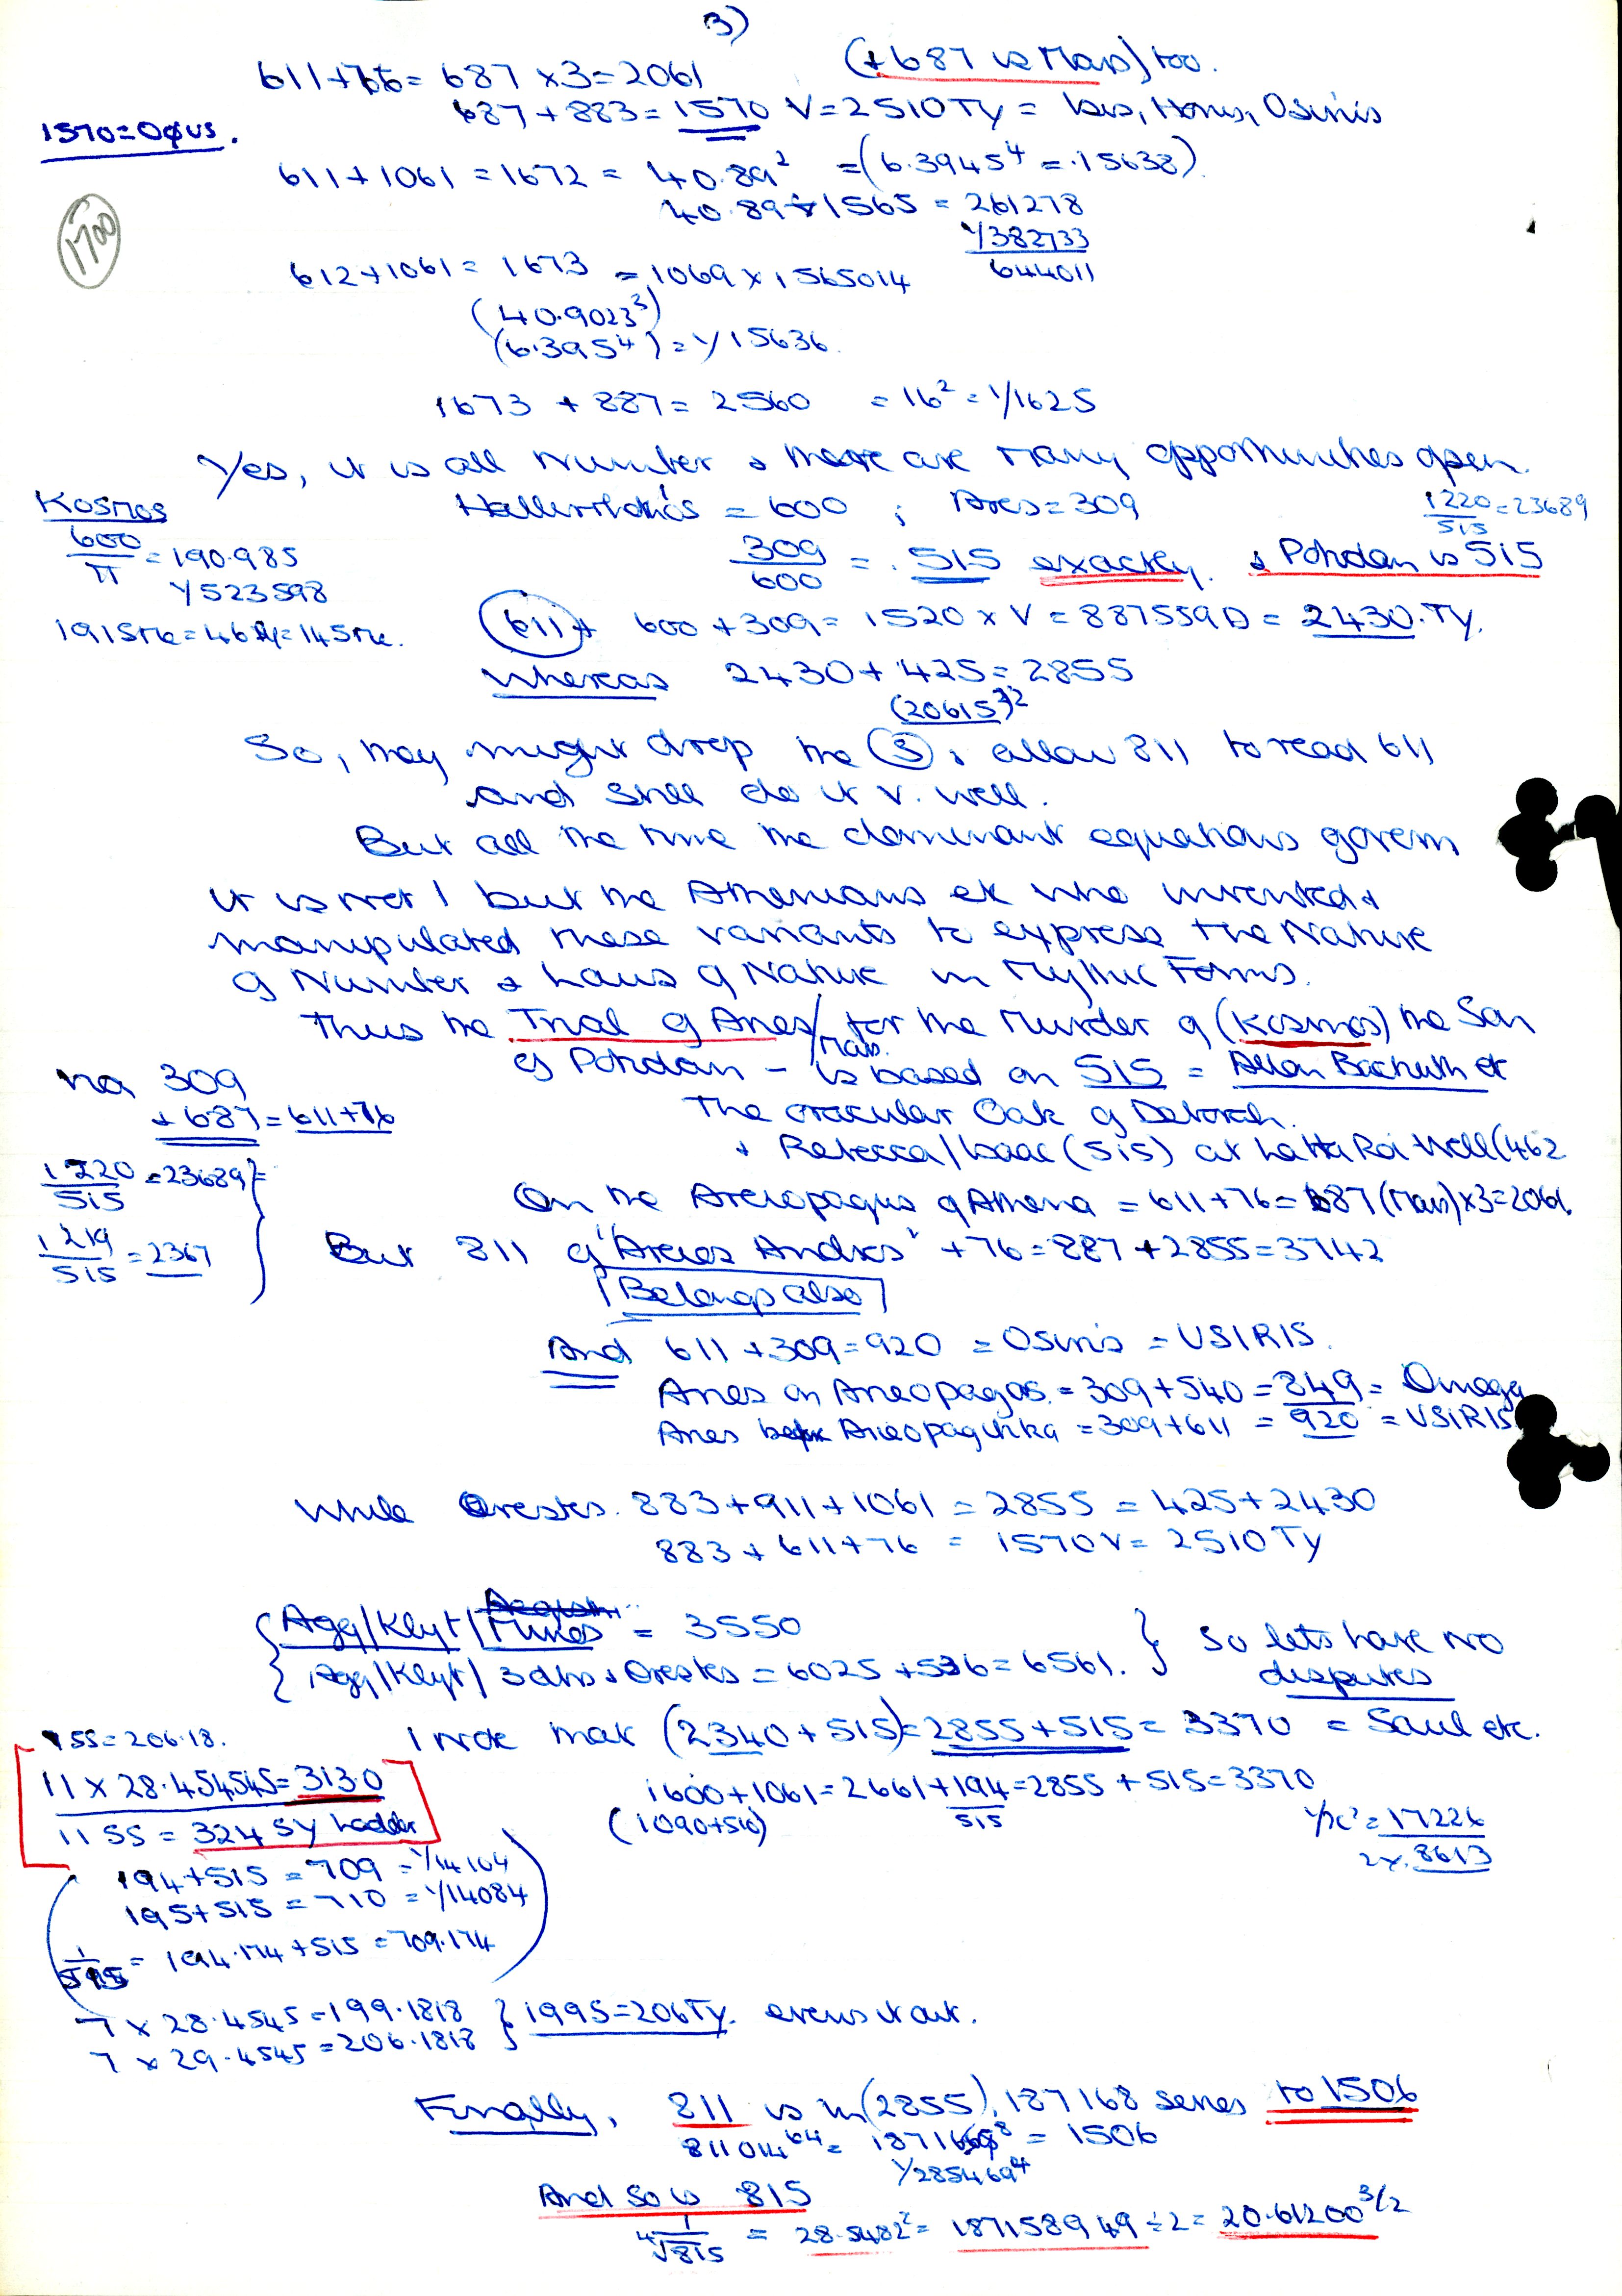 3)
611+76= 687 x3=2061 (+687 is Mars) too.
687+883=1570 V=2510Ty = Isis, Horus, Osiris
1570=Oφus.
611+1061=1672 = 40.89² =(6.3945⁴=.15638)
40.89÷1565 = 261278
1/382733
644011
1700
612+1061= 1673 =1069x1565014
(40.9023²)
(6.395⁴)=1/15636.
1673 +887= 2560 =16²=1/1625
Yes, it is all Number & there are many opportunities open.
Kosmos
600/π =190.985
1/523598
= 600 ; Ares=309
1220/515 =23689
309/600 = .515 exactly. & Poseidon is 515
(611)+ 600+309= 1520 x V = 887559D = 2430.Ty.
Whereas 2430+425=2855
So, they might drop the & allow 811 to read 611
and still do it v. well.
But all the time the dominant equations govern
it is not I but the Athenians etc who invented &
manipulated these variants to express the Nature
of Number & Laws of Nature in Mythic Forms.
Thus the Trial of Ares/Mars for the Murder of (Kosmos) the Son
of - is based on 515 = Allon Bachuth etc
The oracular Oak of Deborah.
& Rebecca/Isaac (515) at LaHa Roi Well(462
309
+687=611+76
1220/515 =23689
1219/515 =2367
On the Areiopagus of Athena = 611+76= 687(Mars)x3=2061.
But 811 of "Areios Andres" +76=887+2855=3742
Belongs also
And 611+309=920 = Osiris = USIRIS.
Ares on Areopagos = 309+540=849= Omega
Ares before Areopagitika =309+611 = 920 =USIRIS
While Orestes. 883+911+1061 = 2855 = 425+2430
883+611+76 = 1570V= 2510Ty
Agg/Klyt/ = 3550
Agg/Klyt/ 3dtrs & Orestes =6025+536=6561. } So lets have no
disputes
I note that (2340+515)=2855+515= 3370 = Saul etc.
7SS=206.18.
11x28.454545=313.0
11SS=324 SY Ladder
1600+1061=2661+194=2855+515=3370
(1090+510) 515
1/x²=17226
2x.8613
194+515=709=1/14104
195+515=710=1/14084
1/515= 194.174+515=709.174
7x28.4545=199.1818 } 199S=206Ty. evens it out.
7x29.4545=206.1818
Finally, 811 is in(2855).187168 series to 1506
811014⁶⁴= 187168⁸ = 1506
1/285469⁴
And so is 815
1/⁴√815 = 28.5482²= 187158949÷2= 20.61200^3/2